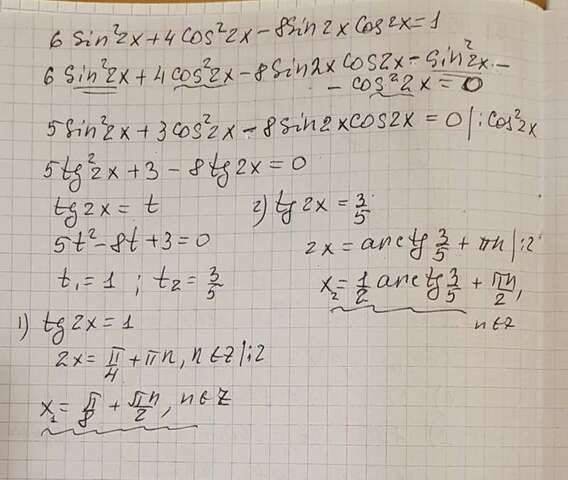 6 sin²2x + 4 cos²2x - 8 sin2x cos2x = 1
6 sin²2x + 4 cos²2x - 8 sin2x cos2x - sin²2x -
- cos²2x = 0
5 sin²2x + 3 cos²2x - 8 sin2x cos2x = 0 | : cos²2x
5 tg²2x + 3 - 8 tg2x = 0
tg2x = t
5t² - 8t + 3 = 0
t₁ = 1 ; t₂ = 3/5
1) tg2x = 1
2x = π/4 + πn, n∈Z | :2
x₁ = π/8 + πn/2, n∈Z
2) tg2x = 3/5
2x = arctg 3/5 + πn | :2
x₂ = 1/2 arctg 3/5 + πn/2,
n∈Z